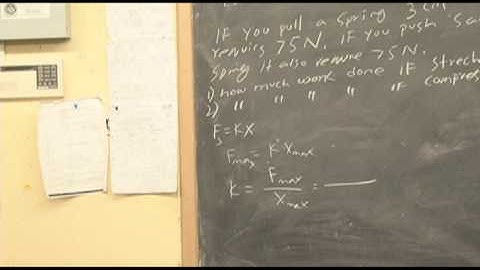 IF you pull a spring 3 cm
requires 75 N. IF you push
spring it also require 75 N.
1) how much work done IF
2) " " " " IF
Fs = KX
Fmax = K Xmax
K = Fmax / Xmax =